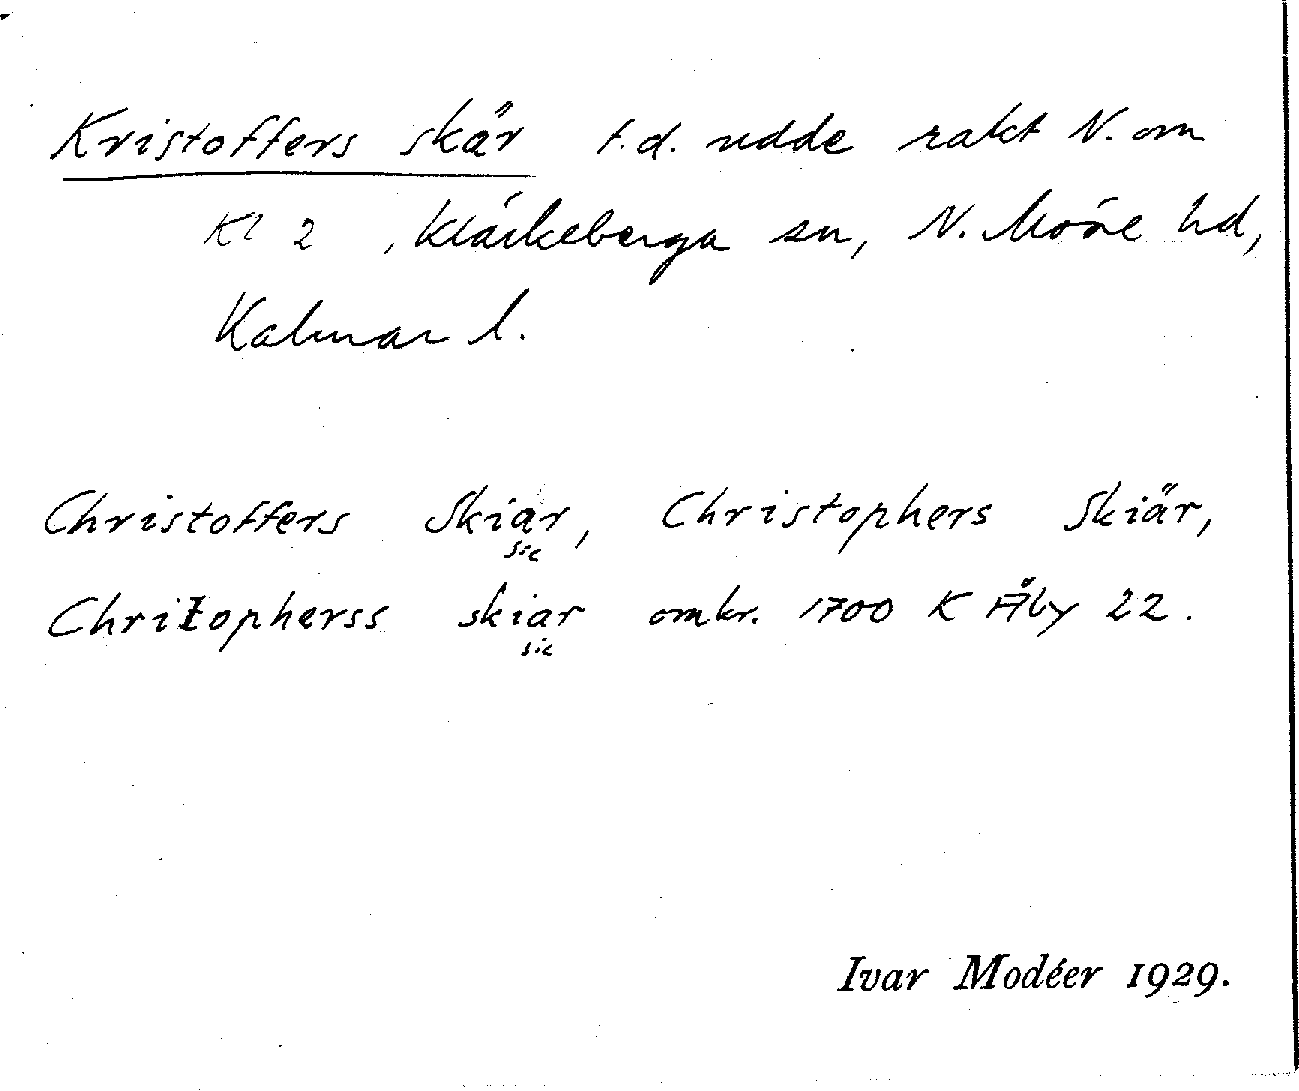 Kristoffers skär f.d. udde rakt N. om
Kl 2, Kläckeberga sn, N. Möre hd,
Kalmar l.
Christoffers Skiar, Christophers Skiär,
sic
Chritopherss skiar omkr. 1700 K Åby 22.
sic
Ivar Modéer 1929.